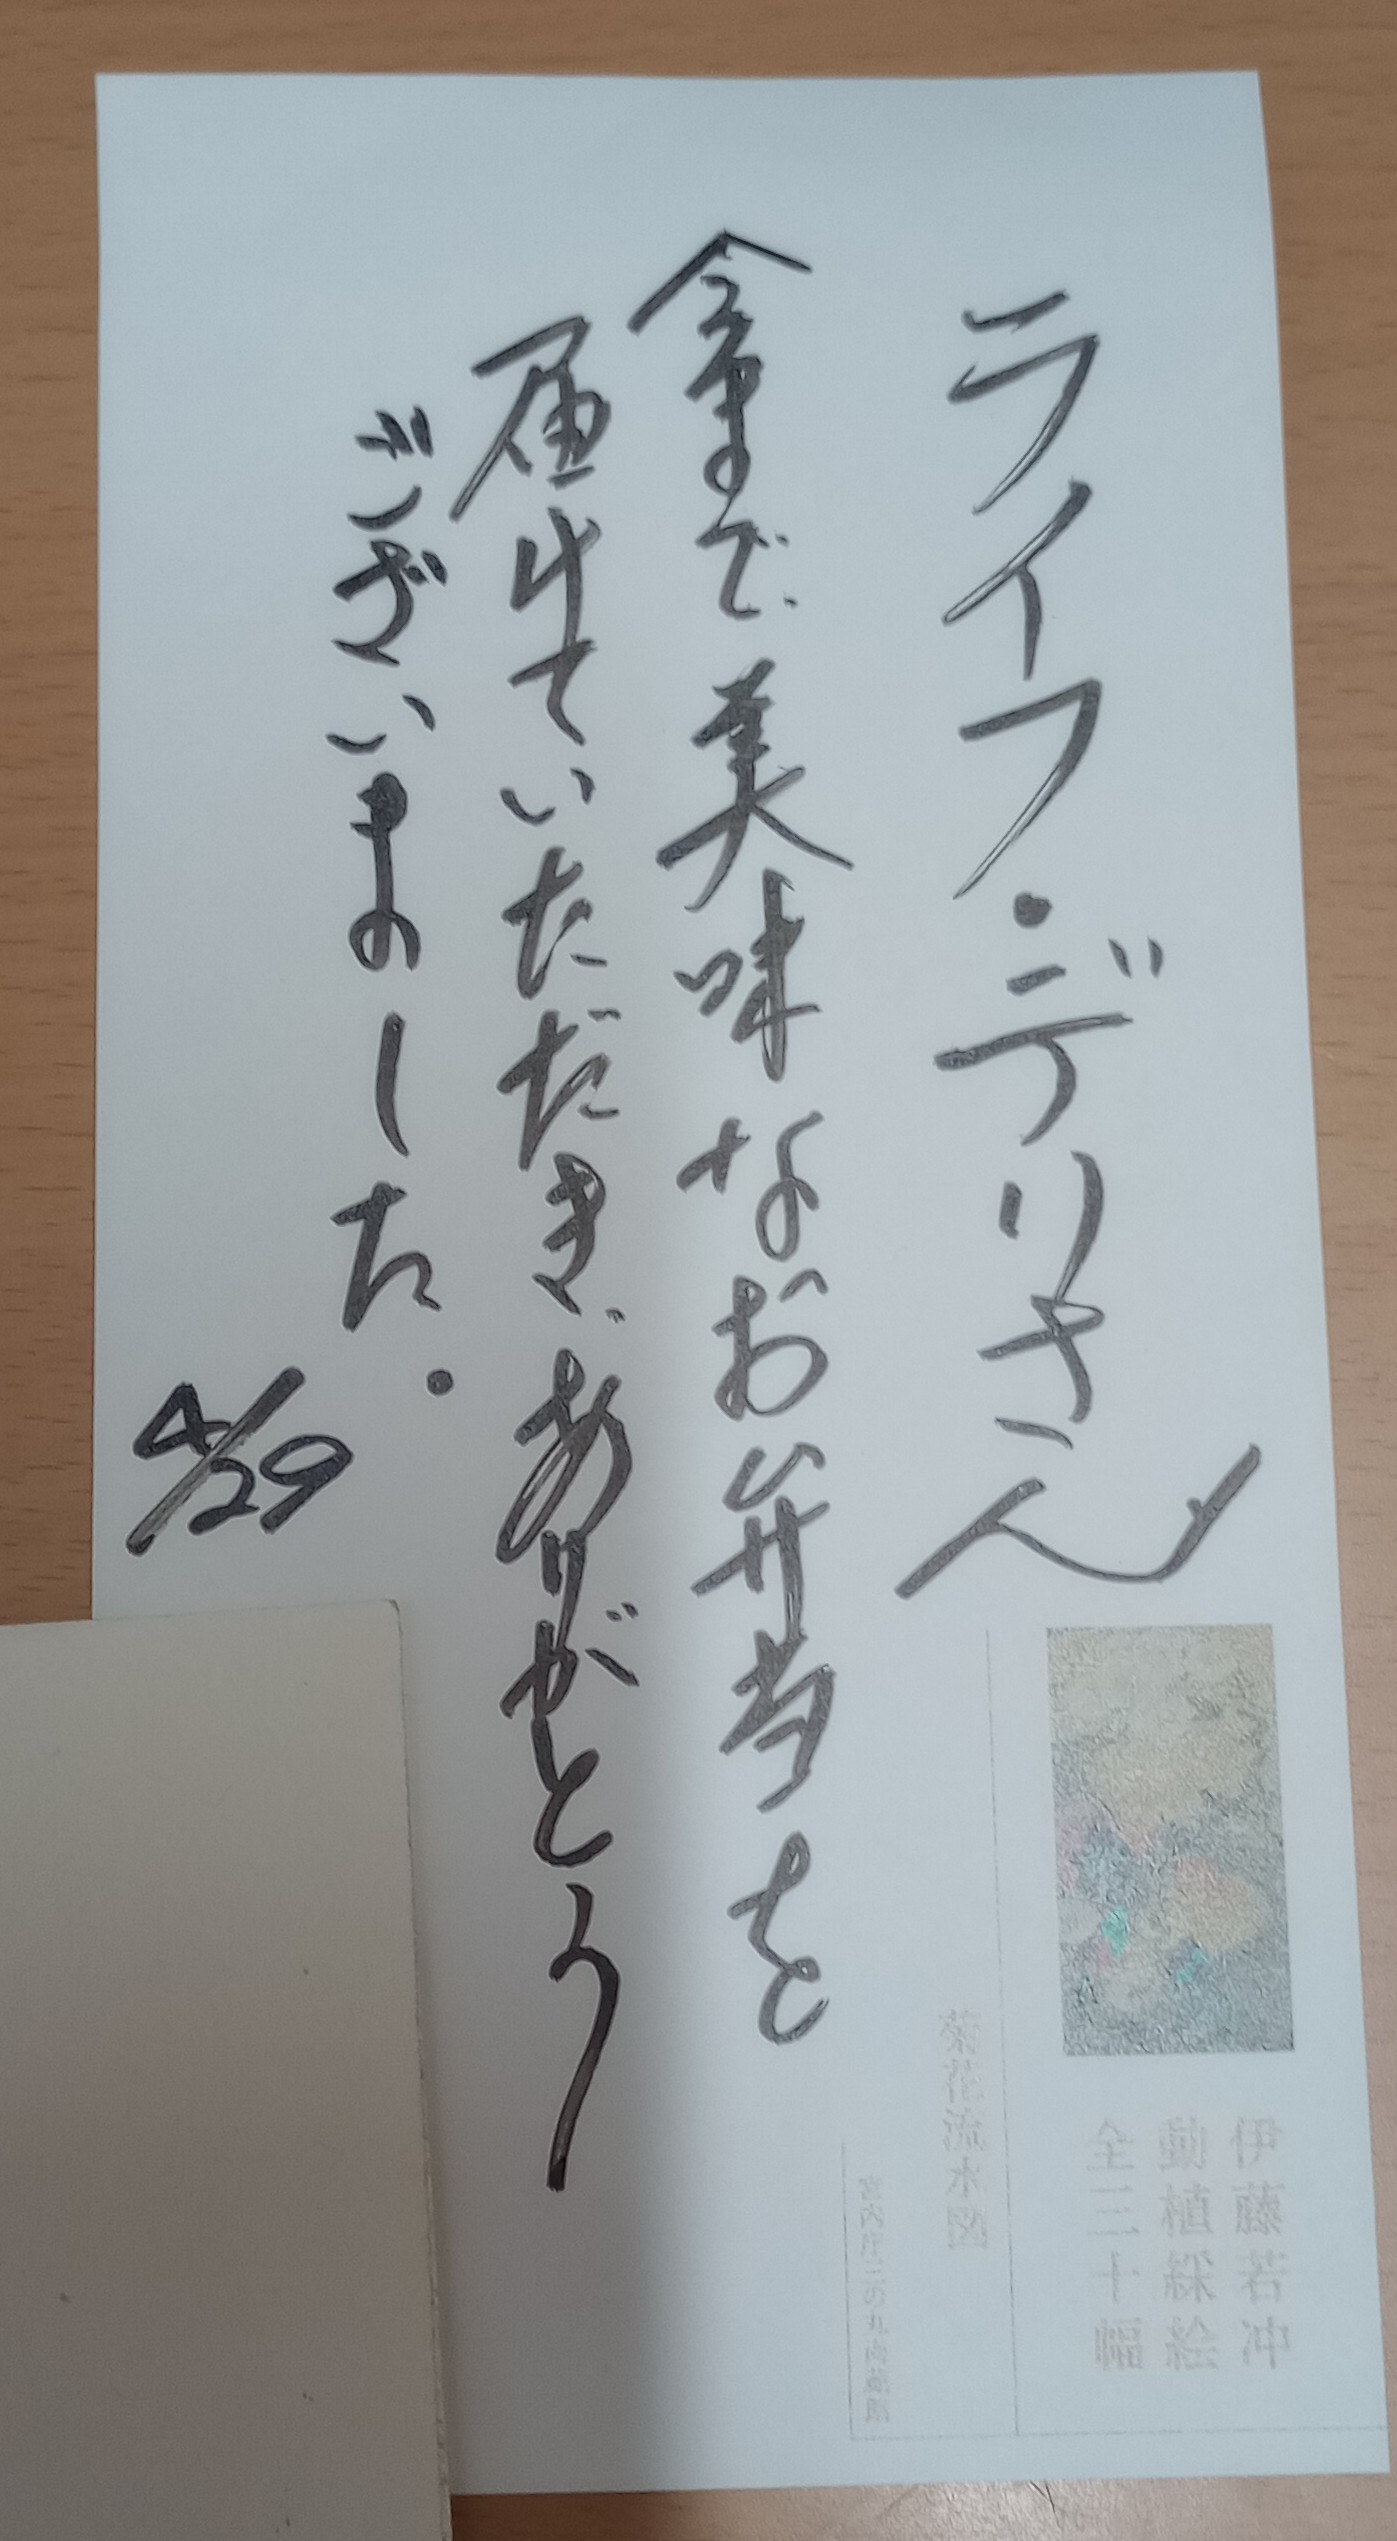 ライフ・デリさん
今まで美味なお弁当を
届けていただき、ありがとう
ございました。
4/29
伊藤若冲
動植綵絵
全三十幅
菊花流水図
宮内庁三の丸尚蔵館